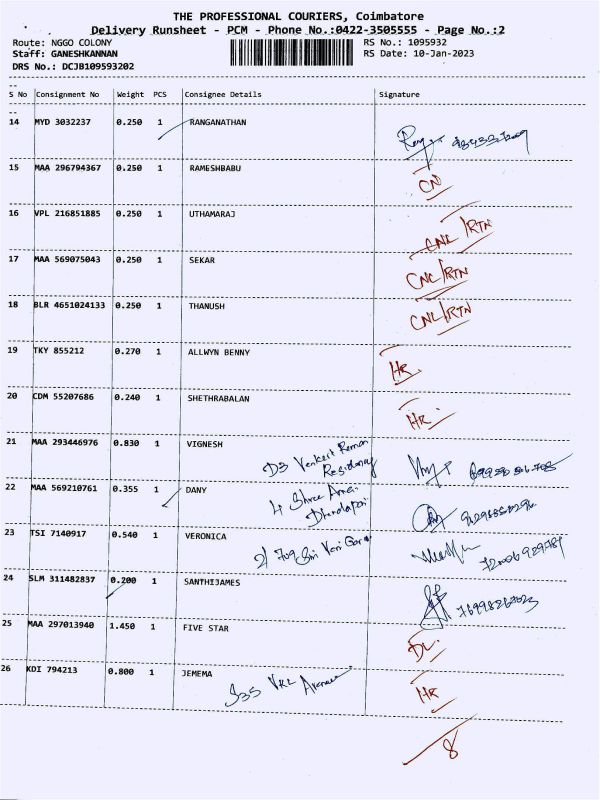 THE PROFESSIONAL COURIERS, Coimbatore
Delivery Runsheet - PCM - Phone No.:0422-3505555 - Page No.:2
Route: NGGO COLONY RS No.: 1095932
Staff: GANESHKANNAN RS Date: 10-Jan-2023
DRS No.: DCJB109593202
S No Consignment No Weight PCS Consignee Details Signature
14 MYD 3032237 0.250 1 RANGANATHAN
15 MAA 296794367 0.250 1 RAMESHBABU CN
16 VPL 216851885 0.250 1 UTHAMARAJ CNL/RTN
17 MAA 569075043 0.250 1 SEKAR CNL/RTN
18 BLR 4651024133 0.250 1 THANUSH CNL/RTN
19 TKY 855212 0.270 1 ALLWYN BENNY HR
20 CDM 55207686 0.240 1 SHETHRABALAN HR
21 MAA 293446976 0.830 1 VIGNESH D3 Venkert Raman
Residancy
22 MAA 569210761 0.355 1 DANY 4 Shree
23 TSI 7140917 0.540 1 VERONICA 2/709 Sri
24 SLM 311482837 0.200 1 SANTHIJAMES
25 MAA 297013940 1.450 1 FIVE STAR DL
26 KDI 794213 0.800 1 JEMEMA S35 VRL Avenue HR
8